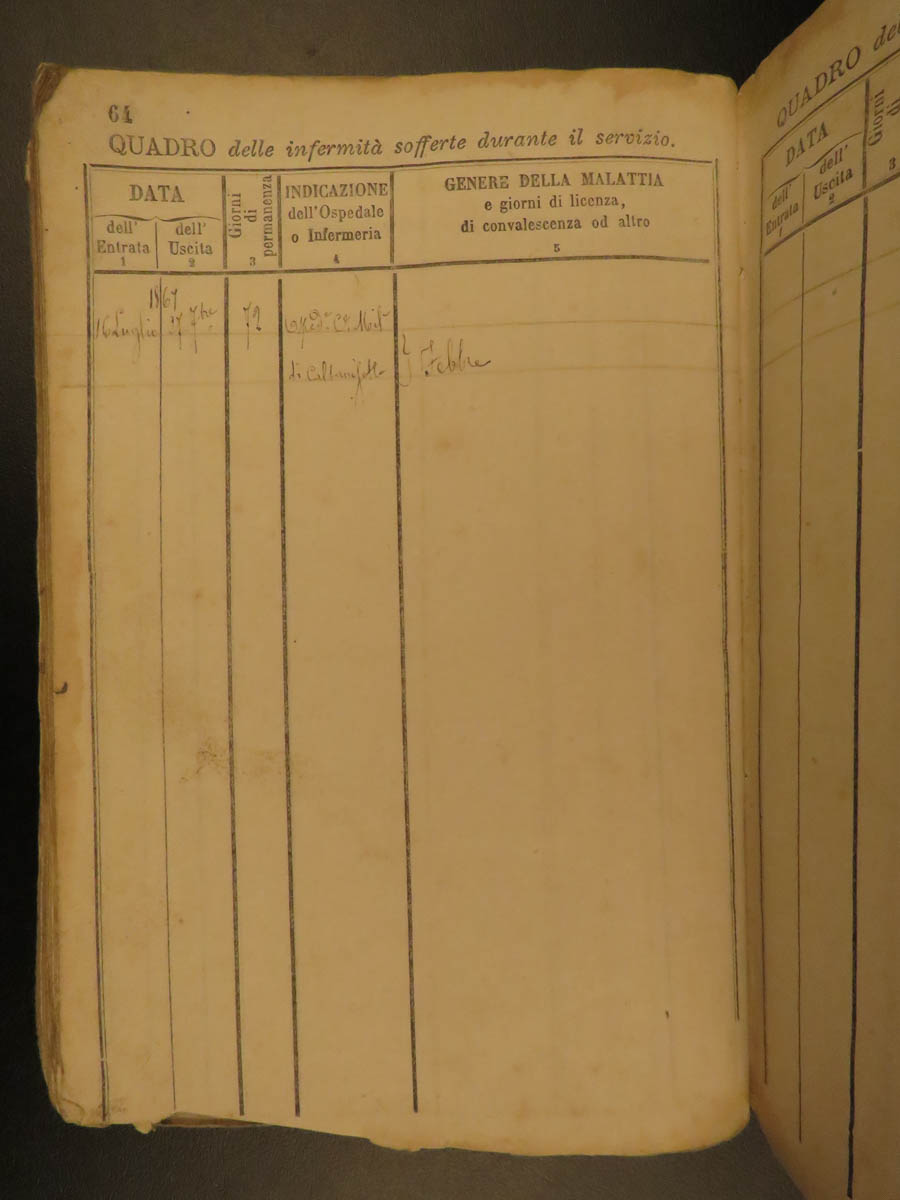 64
QUADRO delle infermità sofferte durante il servizio.
DATA
dell' Entrata
1
dell' Uscita
2
Giorni di permanenza
3
INDICAZIONE
dell'Ospedale
o Infermeria
4
GENERE DELLA MALATTIA
e giorni di licenza,
di convalescenza od altro
5
1867
16 Luglio
7bre
72
Mil.e
di
Febbre
QUADRO del
DATA
dell' Entrata
1
dell' Uscita
2
Giorni di
3